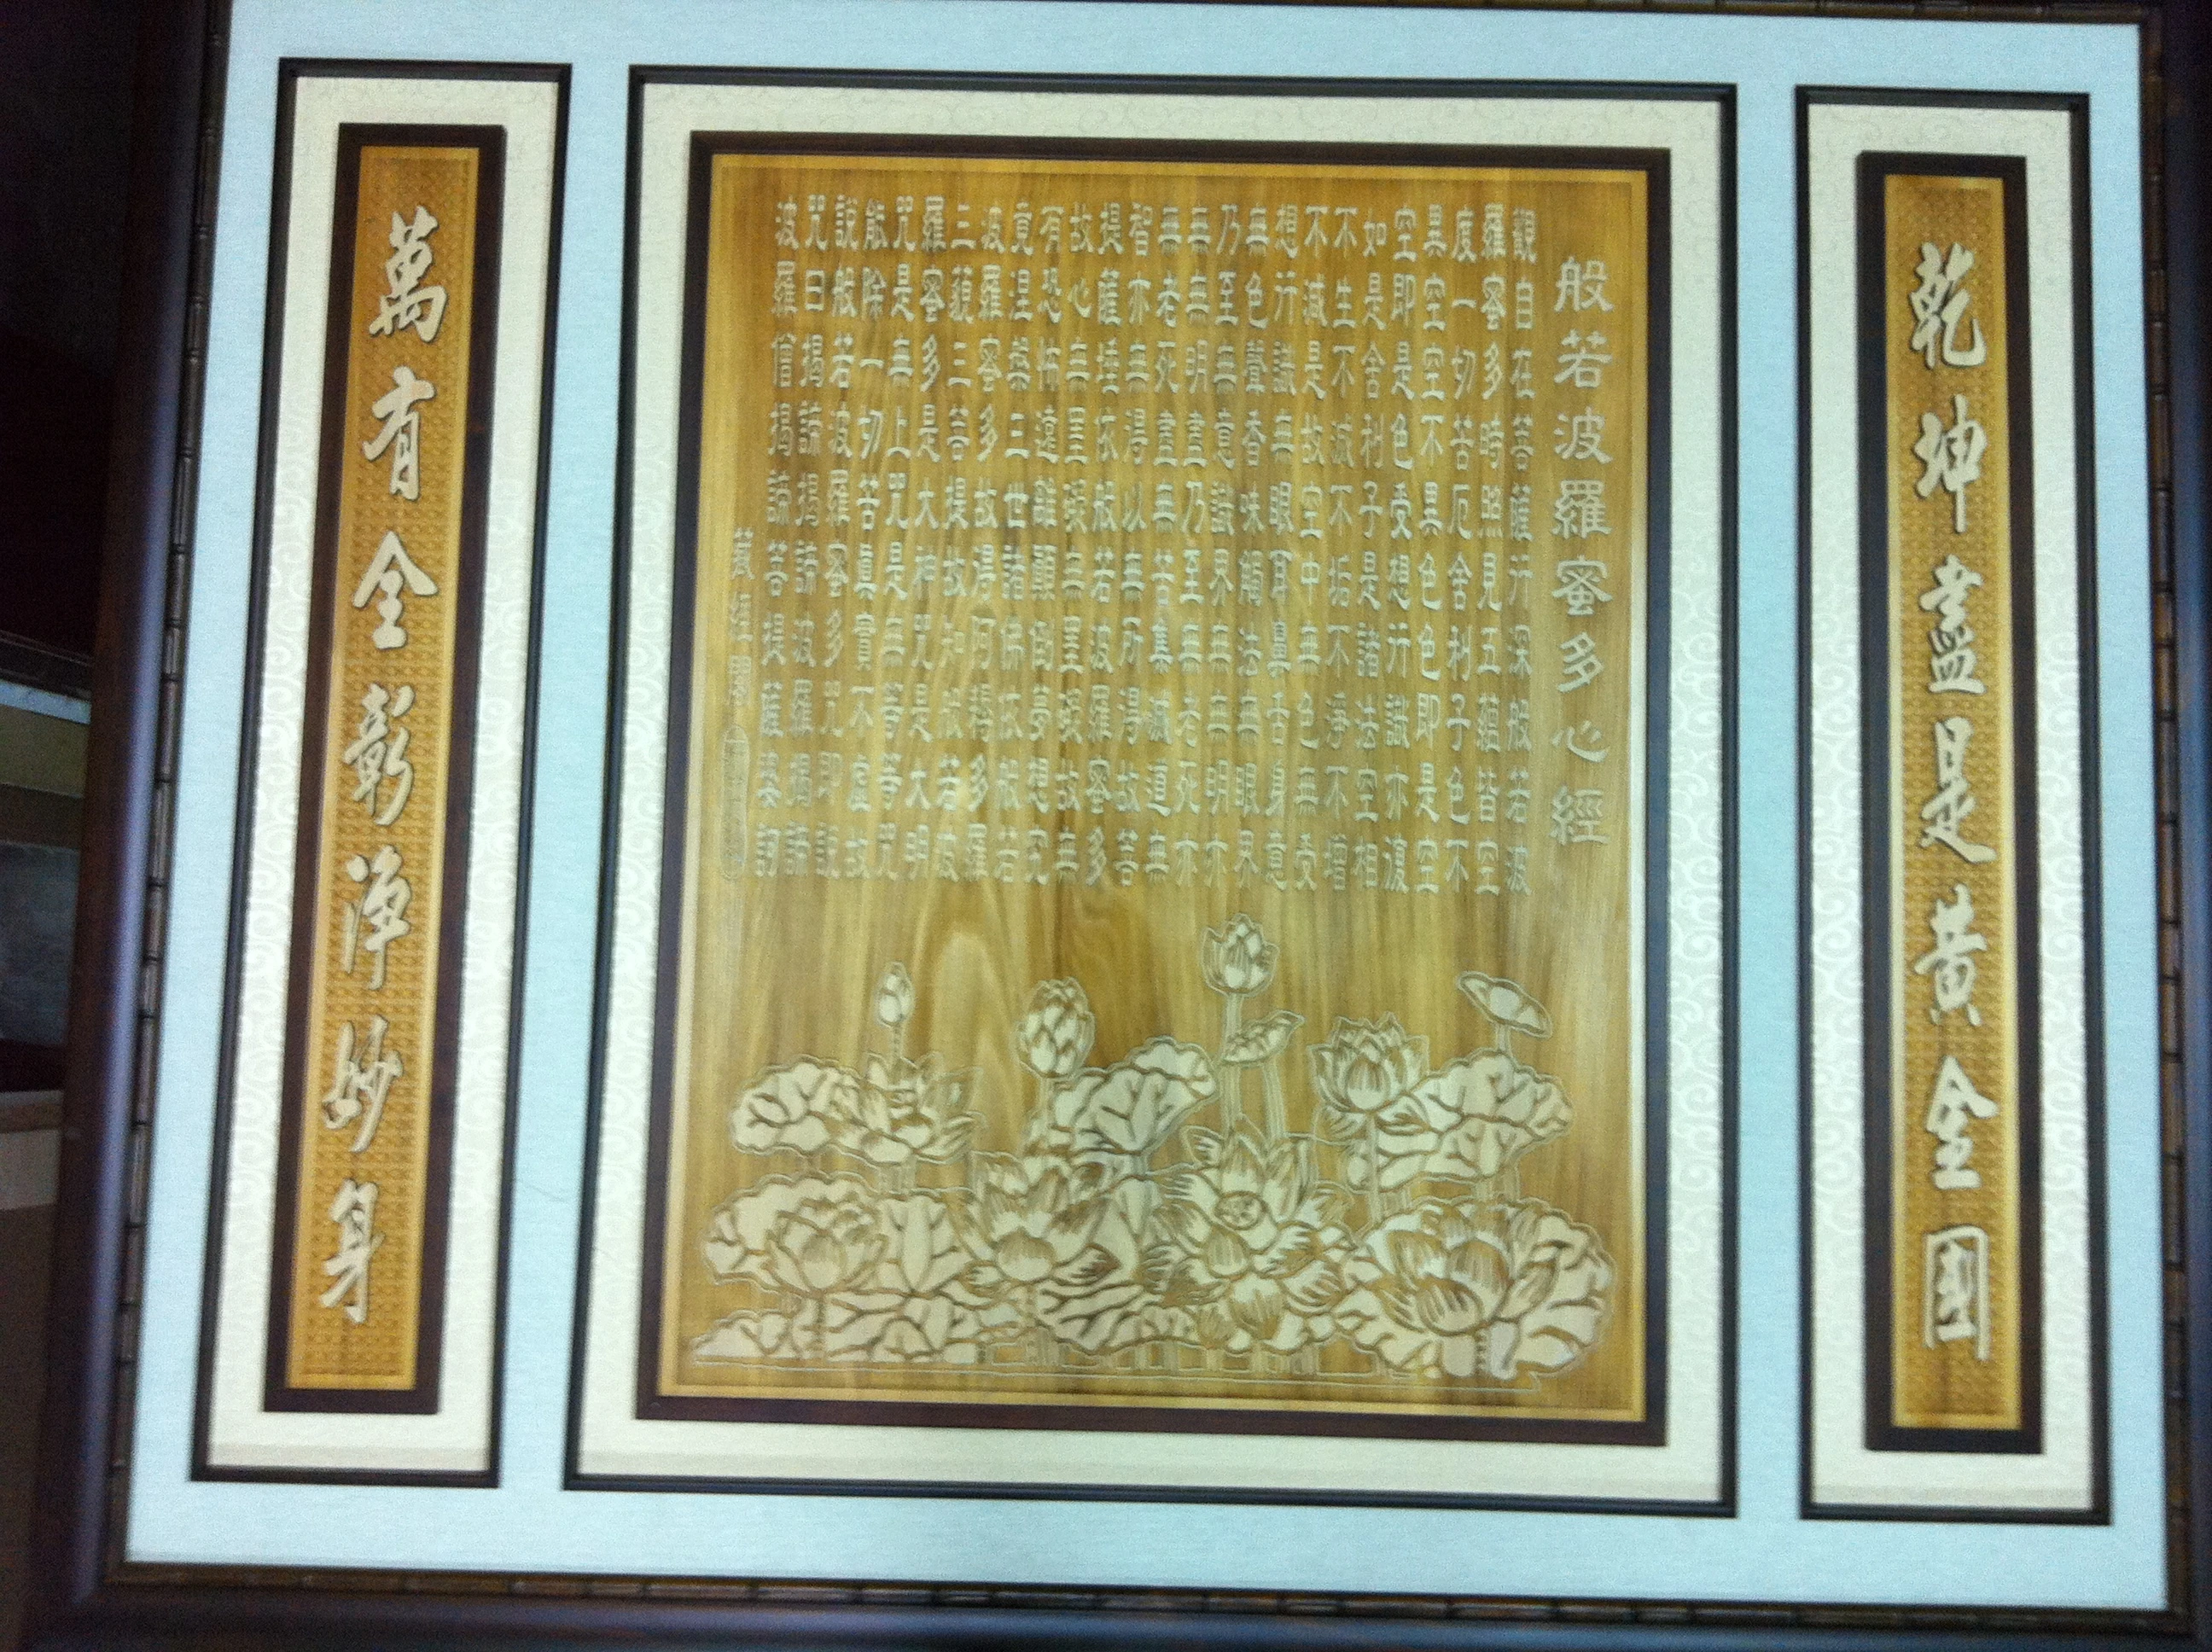 乾坤盡是黃金國
般若波羅蜜多心經
觀自在菩薩行深般若波
羅蜜多時照見五蘊皆空
度一切苦厄舍利子色不
異空空不異色色即是空
空即是色受想行識亦復
如是舍利子是諸法空相
不生不滅不垢不淨不增
不減是故空中無色無受
想行識無眼耳鼻舌身意
無色聲香味觸法無眼界
乃至無意識界無無明亦
無無明盡乃至無老死亦
無老死盡無苦集滅道無
智亦無得以無所得故菩
提薩埵依般若波羅蜜多
故心無罣礙無罣礙故無
有恐怖遠離顛倒夢想究
竟涅槃三世諸佛依般若
波羅蜜多故得阿耨多羅
三藐三菩提故知般若波
羅蜜多是大神咒是大明
咒是無上咒是無等等咒
能除一切苦真實不虛故
說般若波羅蜜多咒即說
咒曰揭諦揭諦波羅揭諦
波羅僧揭諦菩提薩婆訶
藏經閣
萬有全彰淨妙身